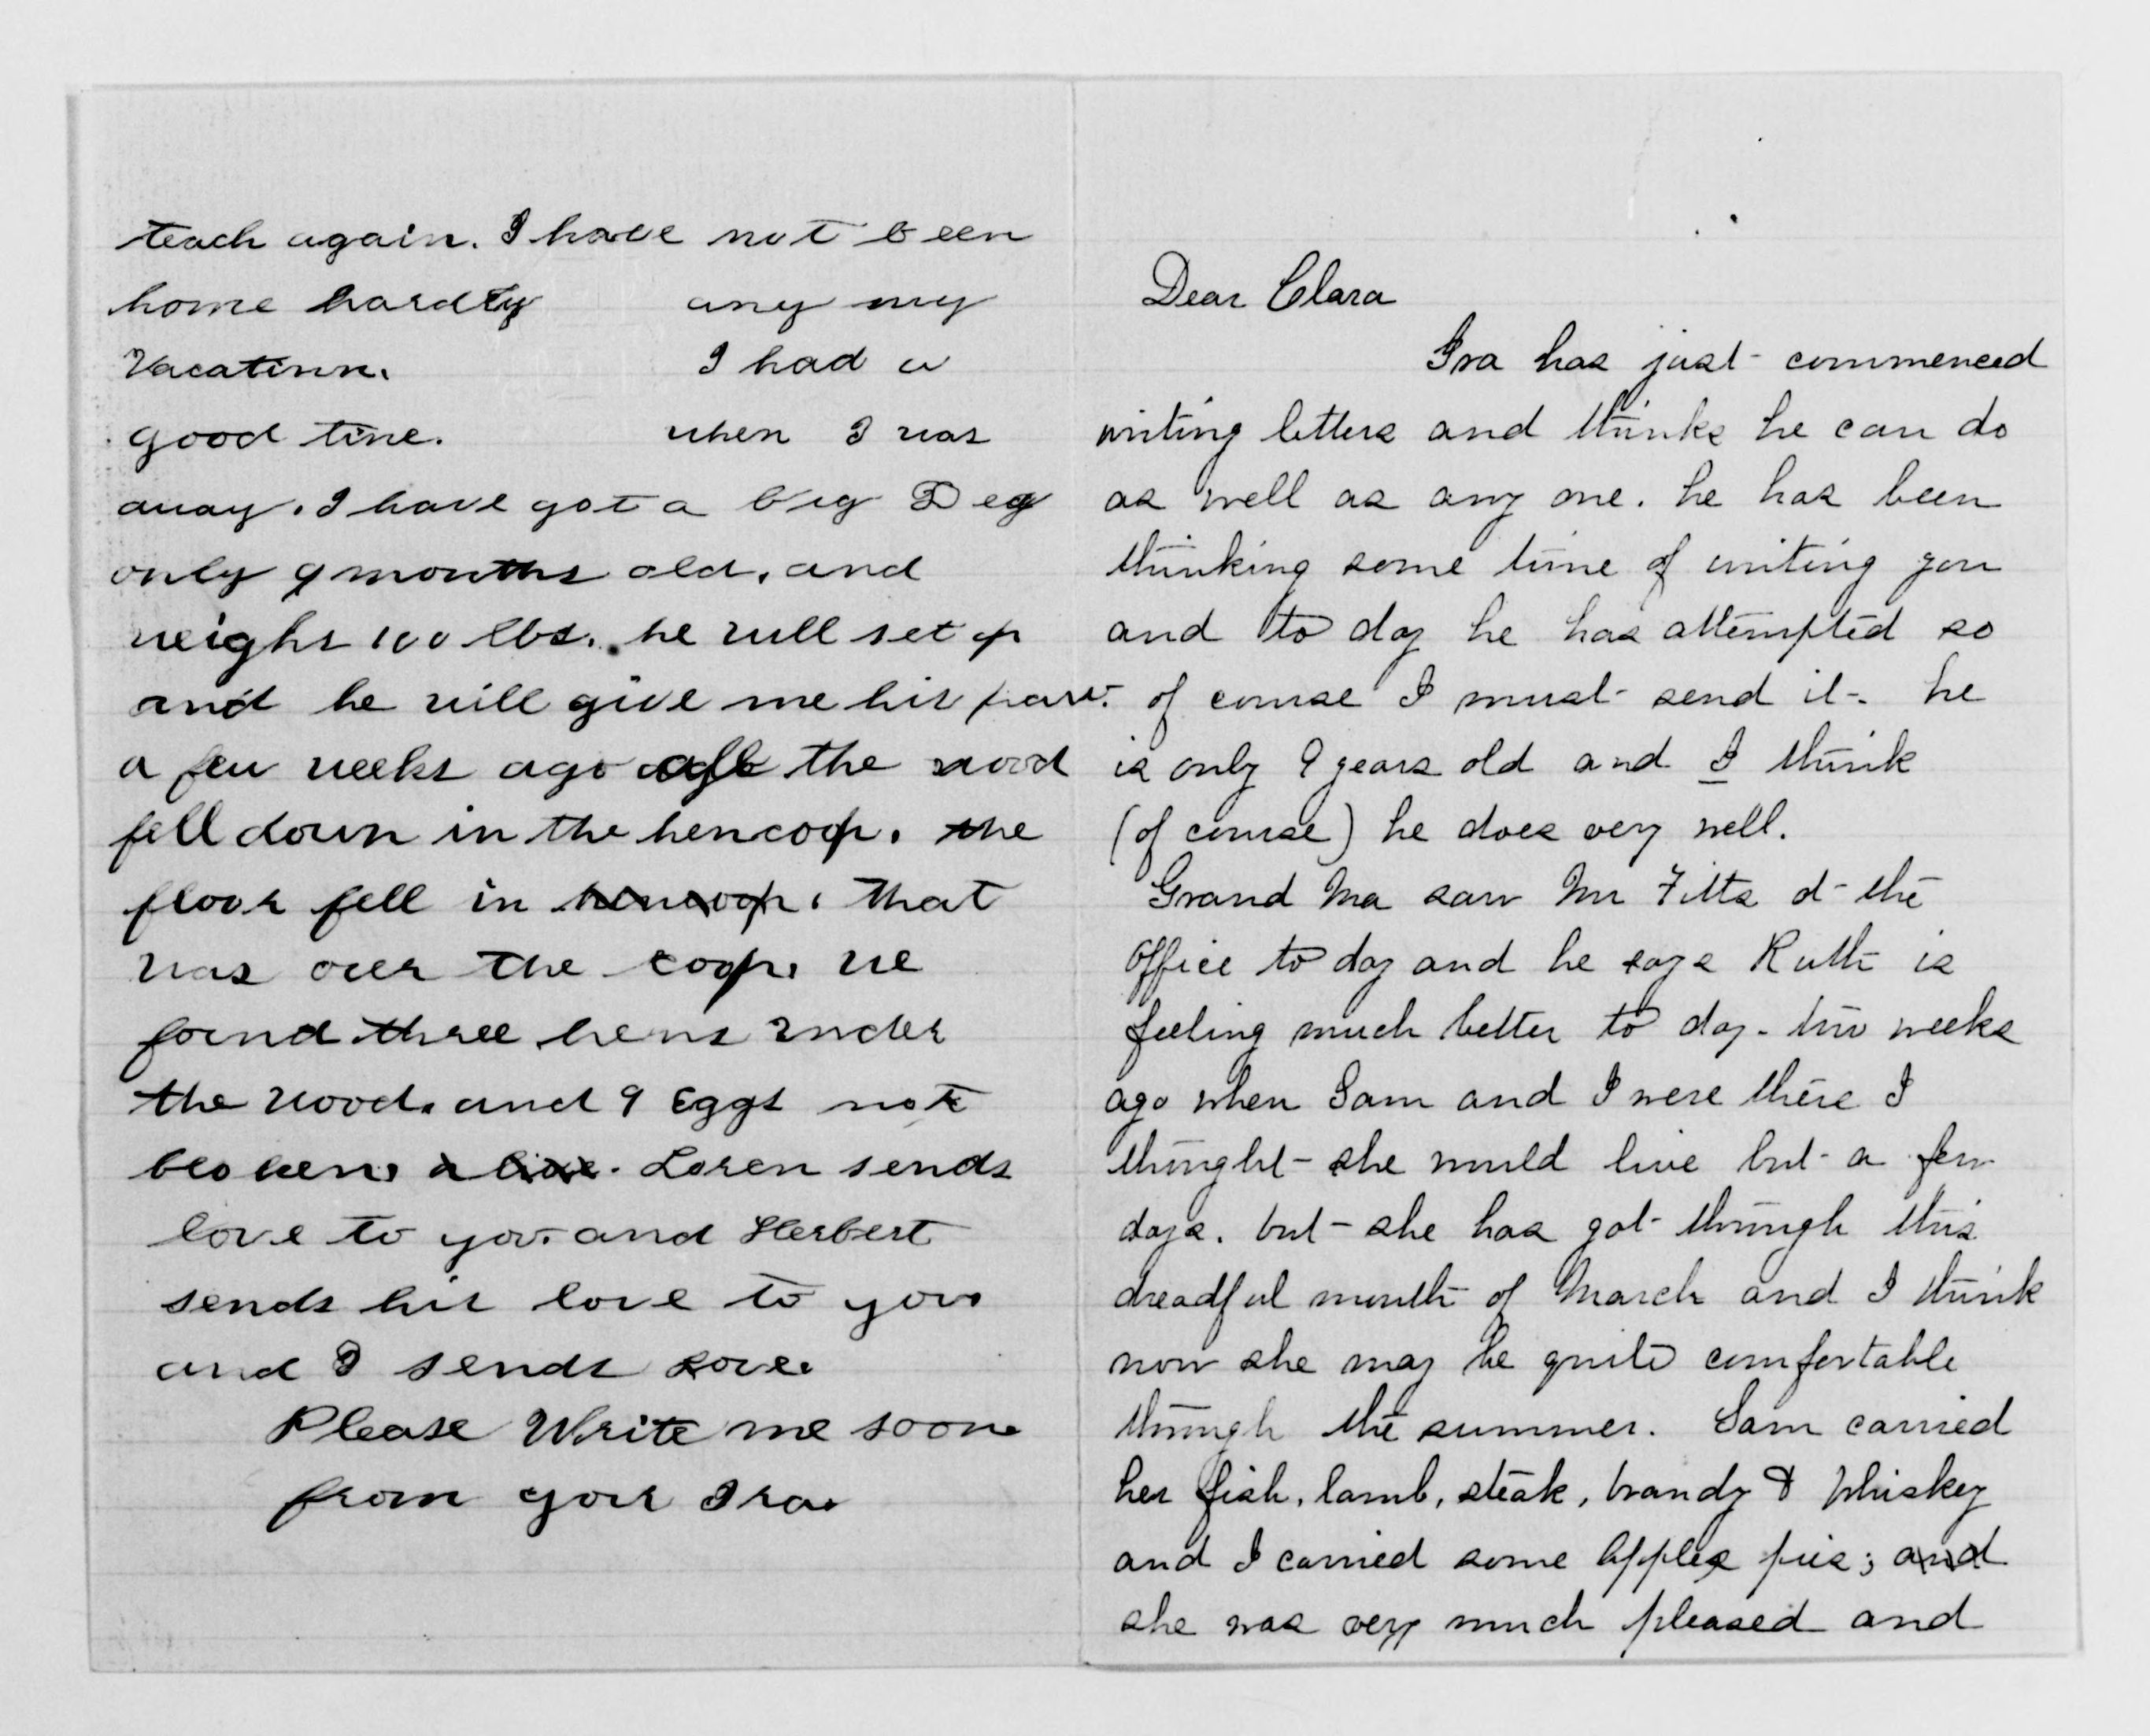 teach again. I have not been
home hardly any my
Vacation. I had a
good time. when I was
away. I have got a big Dog
only 9 months old, and
weighs 100 lbs. he will set up
and he will give me his paw.
a few weeks ago all the wood
fell down in the hencoop. the
floor fell in hencoop. that
was over the coop. we
found three hens under
the wood. and 9 Eggs not
broken. alive. Loren sends
love to you. and Herbert
sends his love to you
and I sends love.
Please Write me soon
from your Ira.
Dear Clara
Ira has just commenced
writing letters and thinks he can do
as well as any one. he has been
thinking some time of writing you
and to day he has attempted so
of course I must send it. he
is only 9 years old and I think
(of course) he does very well.
Grand Ma saw Mr Fitts at the
office to day and he says Ruth is
feeling much better to day. two weeks
ago when Sam and I were there I
thought she would live but a few
days. but she has got through this
dreadful month of March and I think
now she may be quite comfortable
through the summer. Sam carried
her fish, lamb, steak, brandy & Whiskey
and I carried some apples pies; and
she was very much pleased and